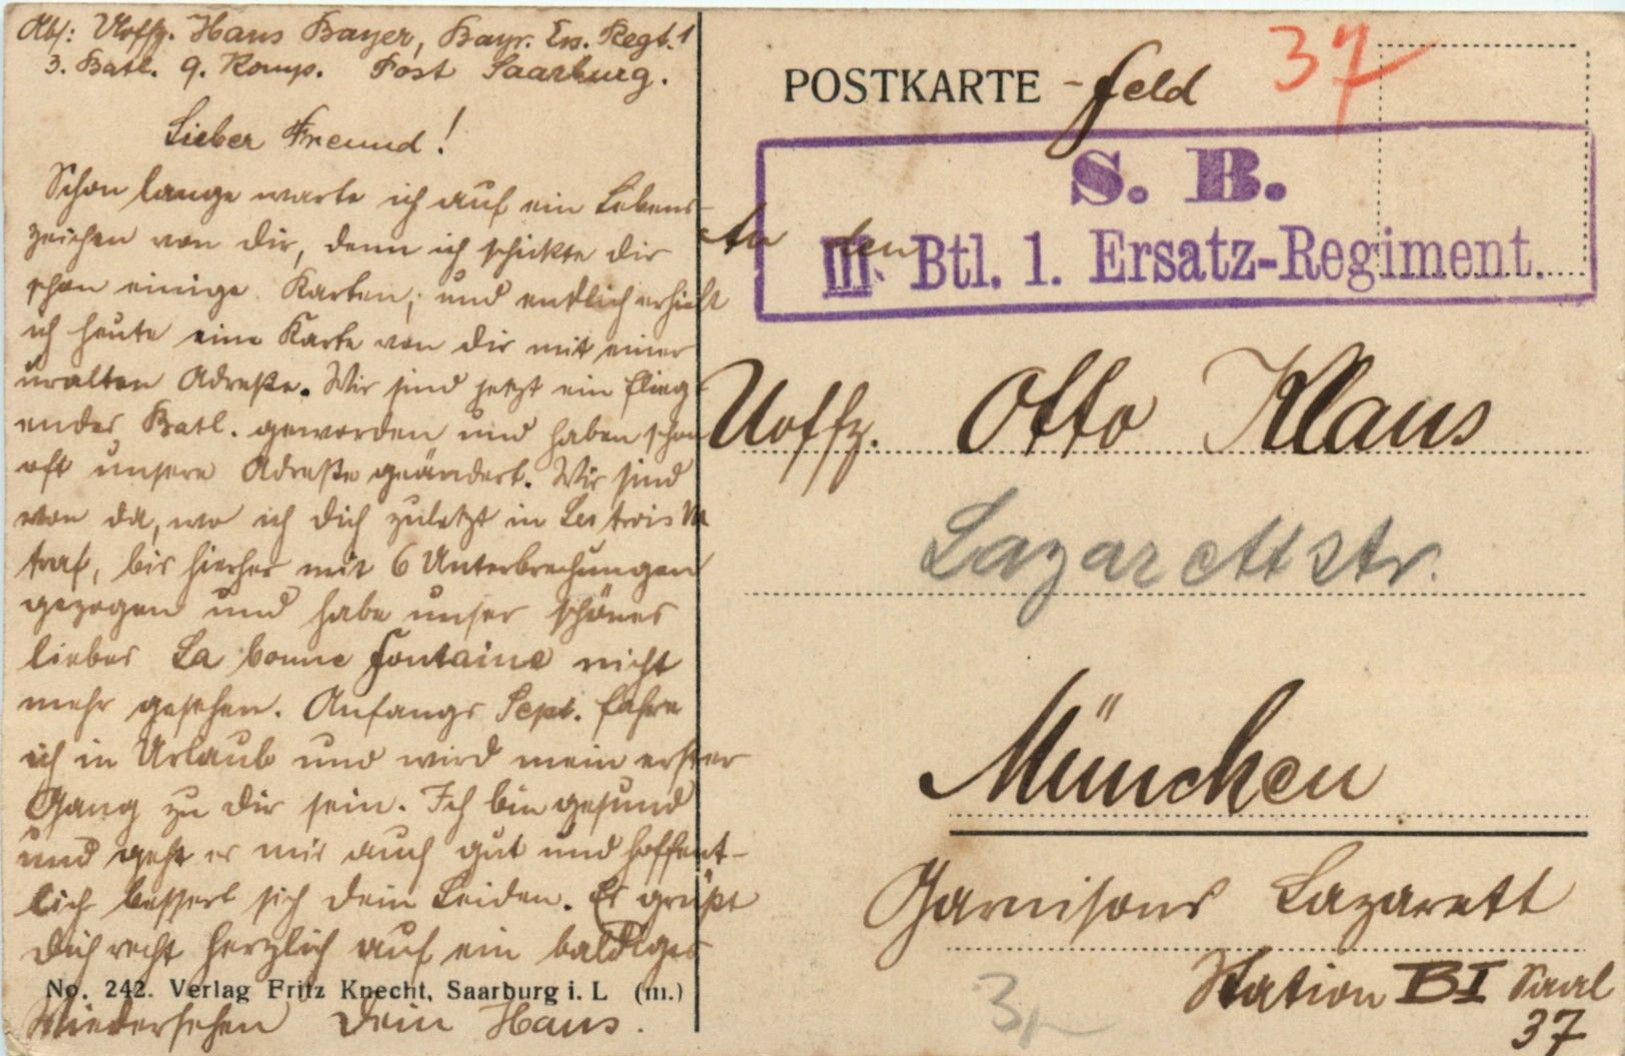 Abs: Uoffz. Hans Bayer, Bayr. Ers. Regt. 1
3. Batl. 9. Komp. Post Saarburg.
Lieber Freund!
Schon lange warte ich auf ein Lebens-
zeichen von dir, denn ich schickte dir
schon einige Karten, und endlich erhielt
ich heute eine Karte von dir mit einer
uralten Adreße. Wir sind jetzt ein flieg-
endes Batl. geworden und haben schon
oft unsere Adreße geändert. Wir sind
von da, wo ich dich zuletzt in Les trois
traf, bis hierher mit 6 Unterbrechungen
gezogen und habe unser schönes
liebes La bonne fontaine nicht
mehr gesehen. Anfangs Sept. fahre
ich in Urlaub und wird mein erster
Gang zu dir sein. Ich bin gesund
und geht es mir auch gut und hoffent-
lich bessert sich dein Leiden. Es grüßt
dich recht herzlich auf ein baldiges
No. 242. Verlag Fritz Knecht, Saarburg i. L (m.)
Wiedersehen Dein Hans.
POSTKARTE - feld
37
S. B.
III. Btl. 1. Ersatz-Regiment.
An den
Uoffz. Otto Klaus
Lazarettstr.
München
Garnisons Lazarett
Station B I Saal
37
3,-